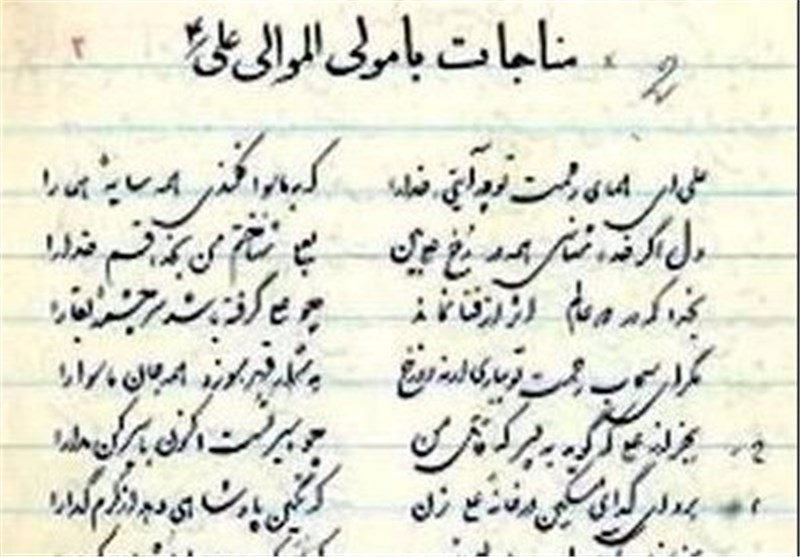 مناجات با مولی الموالی علی ع
علی ای همای رحمت تو چه آیتی خدا را که به ماسوا فکندی همه سایهٔ هما را
دل اگر خداشناسی همه در رخ علی بین بعلی شناختم من بخدا قسم خدا را
بخدا که در دو عالم اثر از فنا نماند چو علی گرفته باشد سرچشمهٔ بقا را
مگر ای سحاب رحمت تو بباری ارنه دوزخ به شرار قهر سوزد همه جان ماسوا را
بجز از علی که گوید به پسر که قاتل من چو اسیر تست اکنون باسیر کن مدارا
برو ای گدای مسکین در خانهٔ علی زن که نگین پادشاهی دهد از کرم گدا را